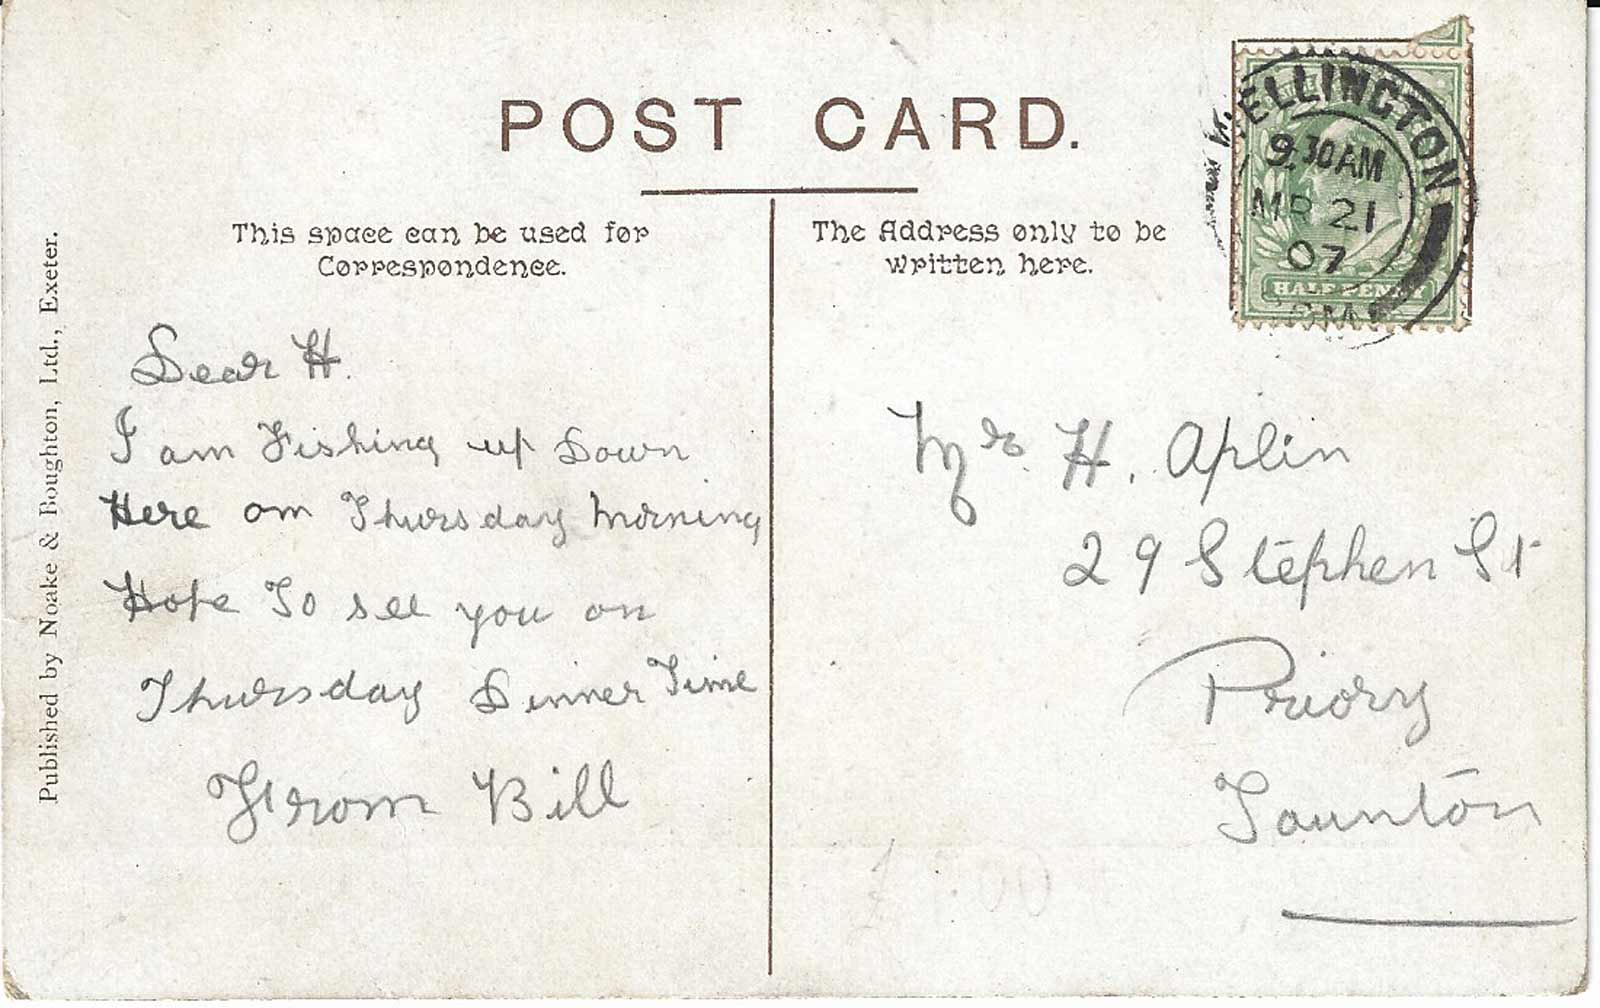 POST CARD.
This space can be used for
Correspondence.
The Address only to be
written here.
WELLINGTON
9.30AM
MR 21
07
HALF PENNY
Published by Noake & Boughton, Ltd., Exeter.
Dear H.
I am Fishing up Down
Here on Thursday Morning
Hope To see you on
Thursday Dinner Time
From Bill
Mr H. Aplin
29 Stephen St
Priory
Taunton